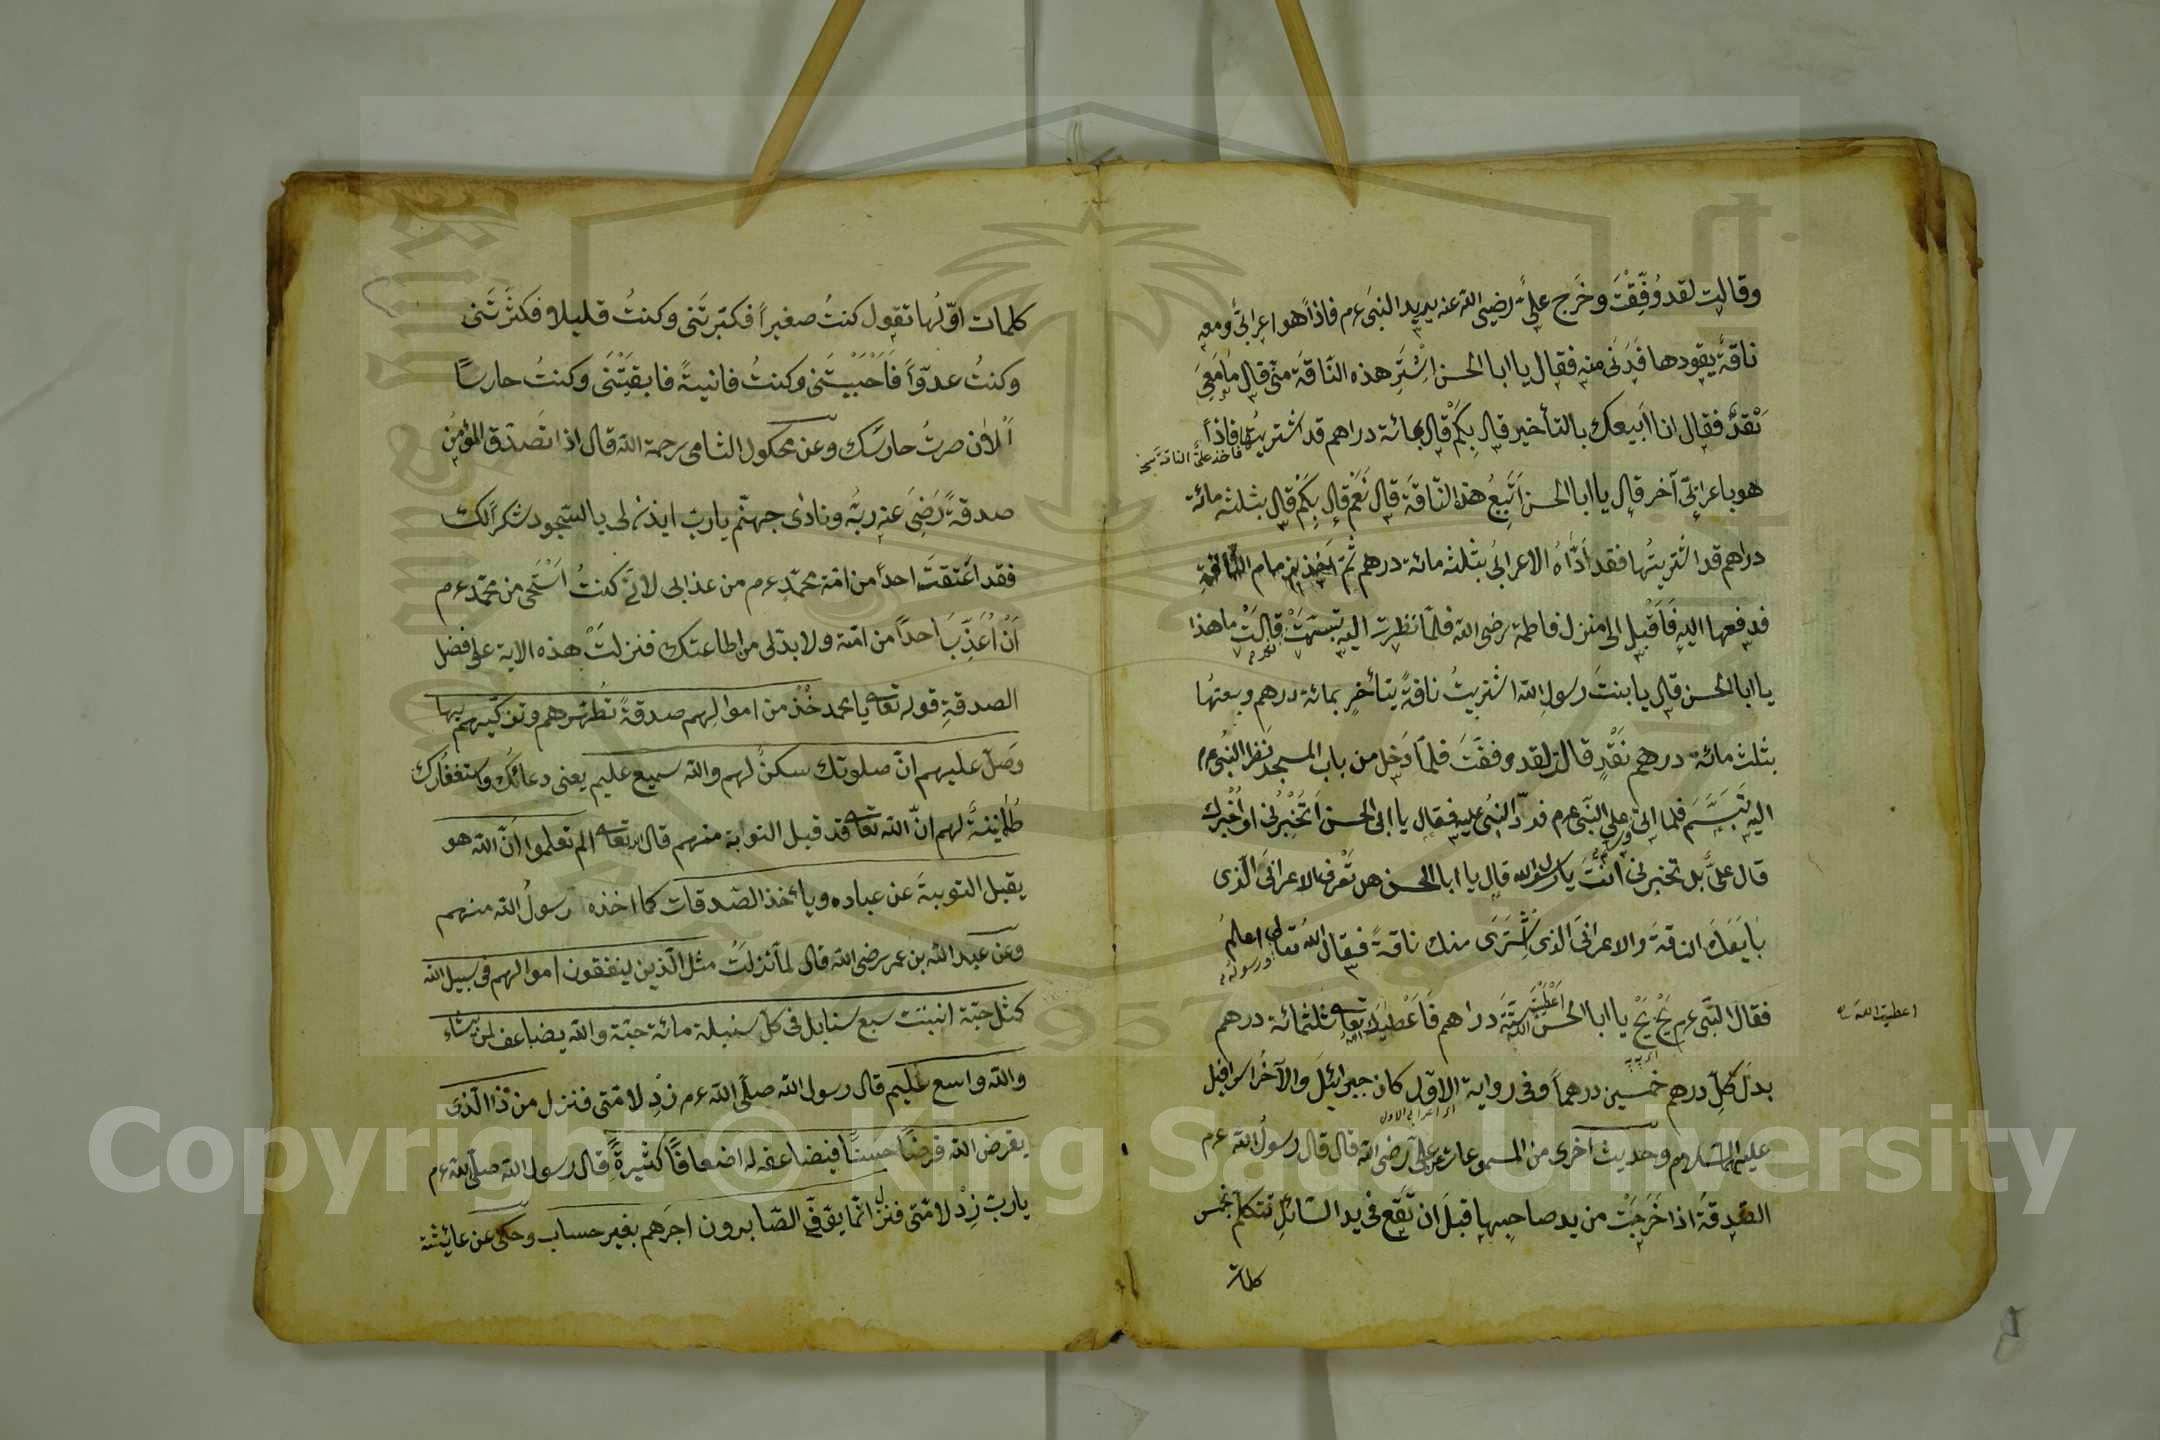 وقالت لقد وُفِّقْتَ وخَرج عليٌّ رضي الله عنه يريد النبيَ عم فاذاً هو اعرابيٌّ ومعه
ناقةٌ يقودها فَدَنَى منه فقال يا ابا الحسن اِشْتَرِ هذه النّاقةَ منّي قال مَا مَعِيَ
نَقْدٌ فقال انا اَبيعك بالتأخير قال بِكَمْ قال بمائة دراهم قد اشتريتُها فاذاً
فاخذ عليٌّ الناقة
هو باعرابيّ آخر قال يا ابا الحسن اَتَبِيعُ هذه النّاقةَ قال نَعَمْ قال بِكَمْ قال بثلثه مائة
دراهم قد اشتريتُها فقد اَدَّاهُ الاعرابيُ بثلثه مائة درهم ثُمَّ اَخذ بزمام النّاقةِ
فدفعها اليه فَاَقْبل الى منزل فاطمة رضي الله فلمّا نظرت اليه تبسّمَتْ قالَتْ ما هذا
يا ابا الحسن قال يا بنتَ رسولِ الله اشتريتُ ناقةً بتأخرٍ بمائة درهم وبعتُها
بثلث مائة درهم نَقْدٍ قالت لقد وفقتَ فلمّا دَخل من باب المسجد نظر النبيُ عم
اليه تَبَسَّمَ فلما اتى علي النّبي عم فردّ النبيُ عليه فقال يا ابى الحسن اَتُخْبِرُنى او اُخْبِرُك
قال عليٌّ بل تخبرني انْتَ يا رسول الله قال يا ابا الحسن هل تَعْرف الاعرابيَّ الّذى
بَايَعَكَ الناقةَ والاعرابيَ الذي اشْتَرَى منك ناقةً فقال اللهُ تعالى اعلمُ
ورسوله
فقال النّبي عم بَخْ بَخْ يا ابا الحسن اَعْطَيْتَ الله ستّةَ دراهم فَاَعْطيك الله تعالى ثلثمائة درهم
اعطيت الله ستة
بدل كلِّ درهم خمسين درهماً وفي رواية الاول كان جبرائيلَ والآخرُ اسرافيل
اى اعرابى الاول
عليهما السلام وحديث آخرى من المسموعات عن عليّ رضى الله قال قال رسولُ الله عم
الصّدقةُ اذا خَرَجَتْ من يد صاحبِها قبلَ ان تَقَع فى يد السّائلِ تتكلم بخمس
كلمات
كلمات اوّلُها تقول كنتُ صغيراً فكبّرتَنى وكنتُ قليلا فكثَّرتَنى
وكنتُ عدوّاً فَاَحْبَبْتَنى وكنتُ فانيةً فابقيْتَنى وكنتُ حارساً
اَلْاٰن صرتُ حارسَك وعن مكحول الشامى رحمة الله قال اذا تصدّق المؤمنُ
صدقةً رَضِيَ عنه ربُّه ونادٰى جهنّم يا ربّ ايذن لى بالسّجود شكراً لك
فقد اَعْتقتَ احداً من امّة محمّدٍ عم من عذابى لانّى كنتُ اَسْتَحْيى من محمّد عم
اَنْ اُعَذِّبَ احداً من امّته ولا بدّ لى من اطاعتك فنزلتْ هذه الاية على فضل
الصدقةِ قوله تعالى يا محمد خُذْ من اموالِهم صدقةً تُطهّرهم وتزكّيهم بها
وَصَلِّ عليهم انّ صلوتك سكنٌ لهم والله سميع عليم يعنى دعائَك واستغفارَك
طُمَأْنِينَةً لهم انّ الله تعالى قد قبل التوبة منهم قال الله تعالى الم تعلموا اَنَّ الله هو
يقبل التوبةَ عن عباده ويأخذ الصّدقات كما اخذه رسولُ الله منهم
وعن عبد الله بن عمر رضى الله قال لما نزلَتْ مثل الّذين ينفقون اموالهم فى سبيل الله
كمثل حبّة انبتت سبع سنابل فى كلّ سنبلة مائة حبّة والله يضاعف لمن يشاء
والله واسع عليم قال رسول الله صلّى الله عم زِدْ لامّتى فنزل من ذا الّذى
يقرض الله قرضاً حسناً فيضاعفه له اضعافاً كثيرةً قال رسول الله صلى الله عم
يا ربّ زِدْ لامّتى فنزل انّما يوفّى الصّابرون اجرَهم بغير حساب وحكى عن عائشة
Copyright © King Saud University
King Saud University
1957